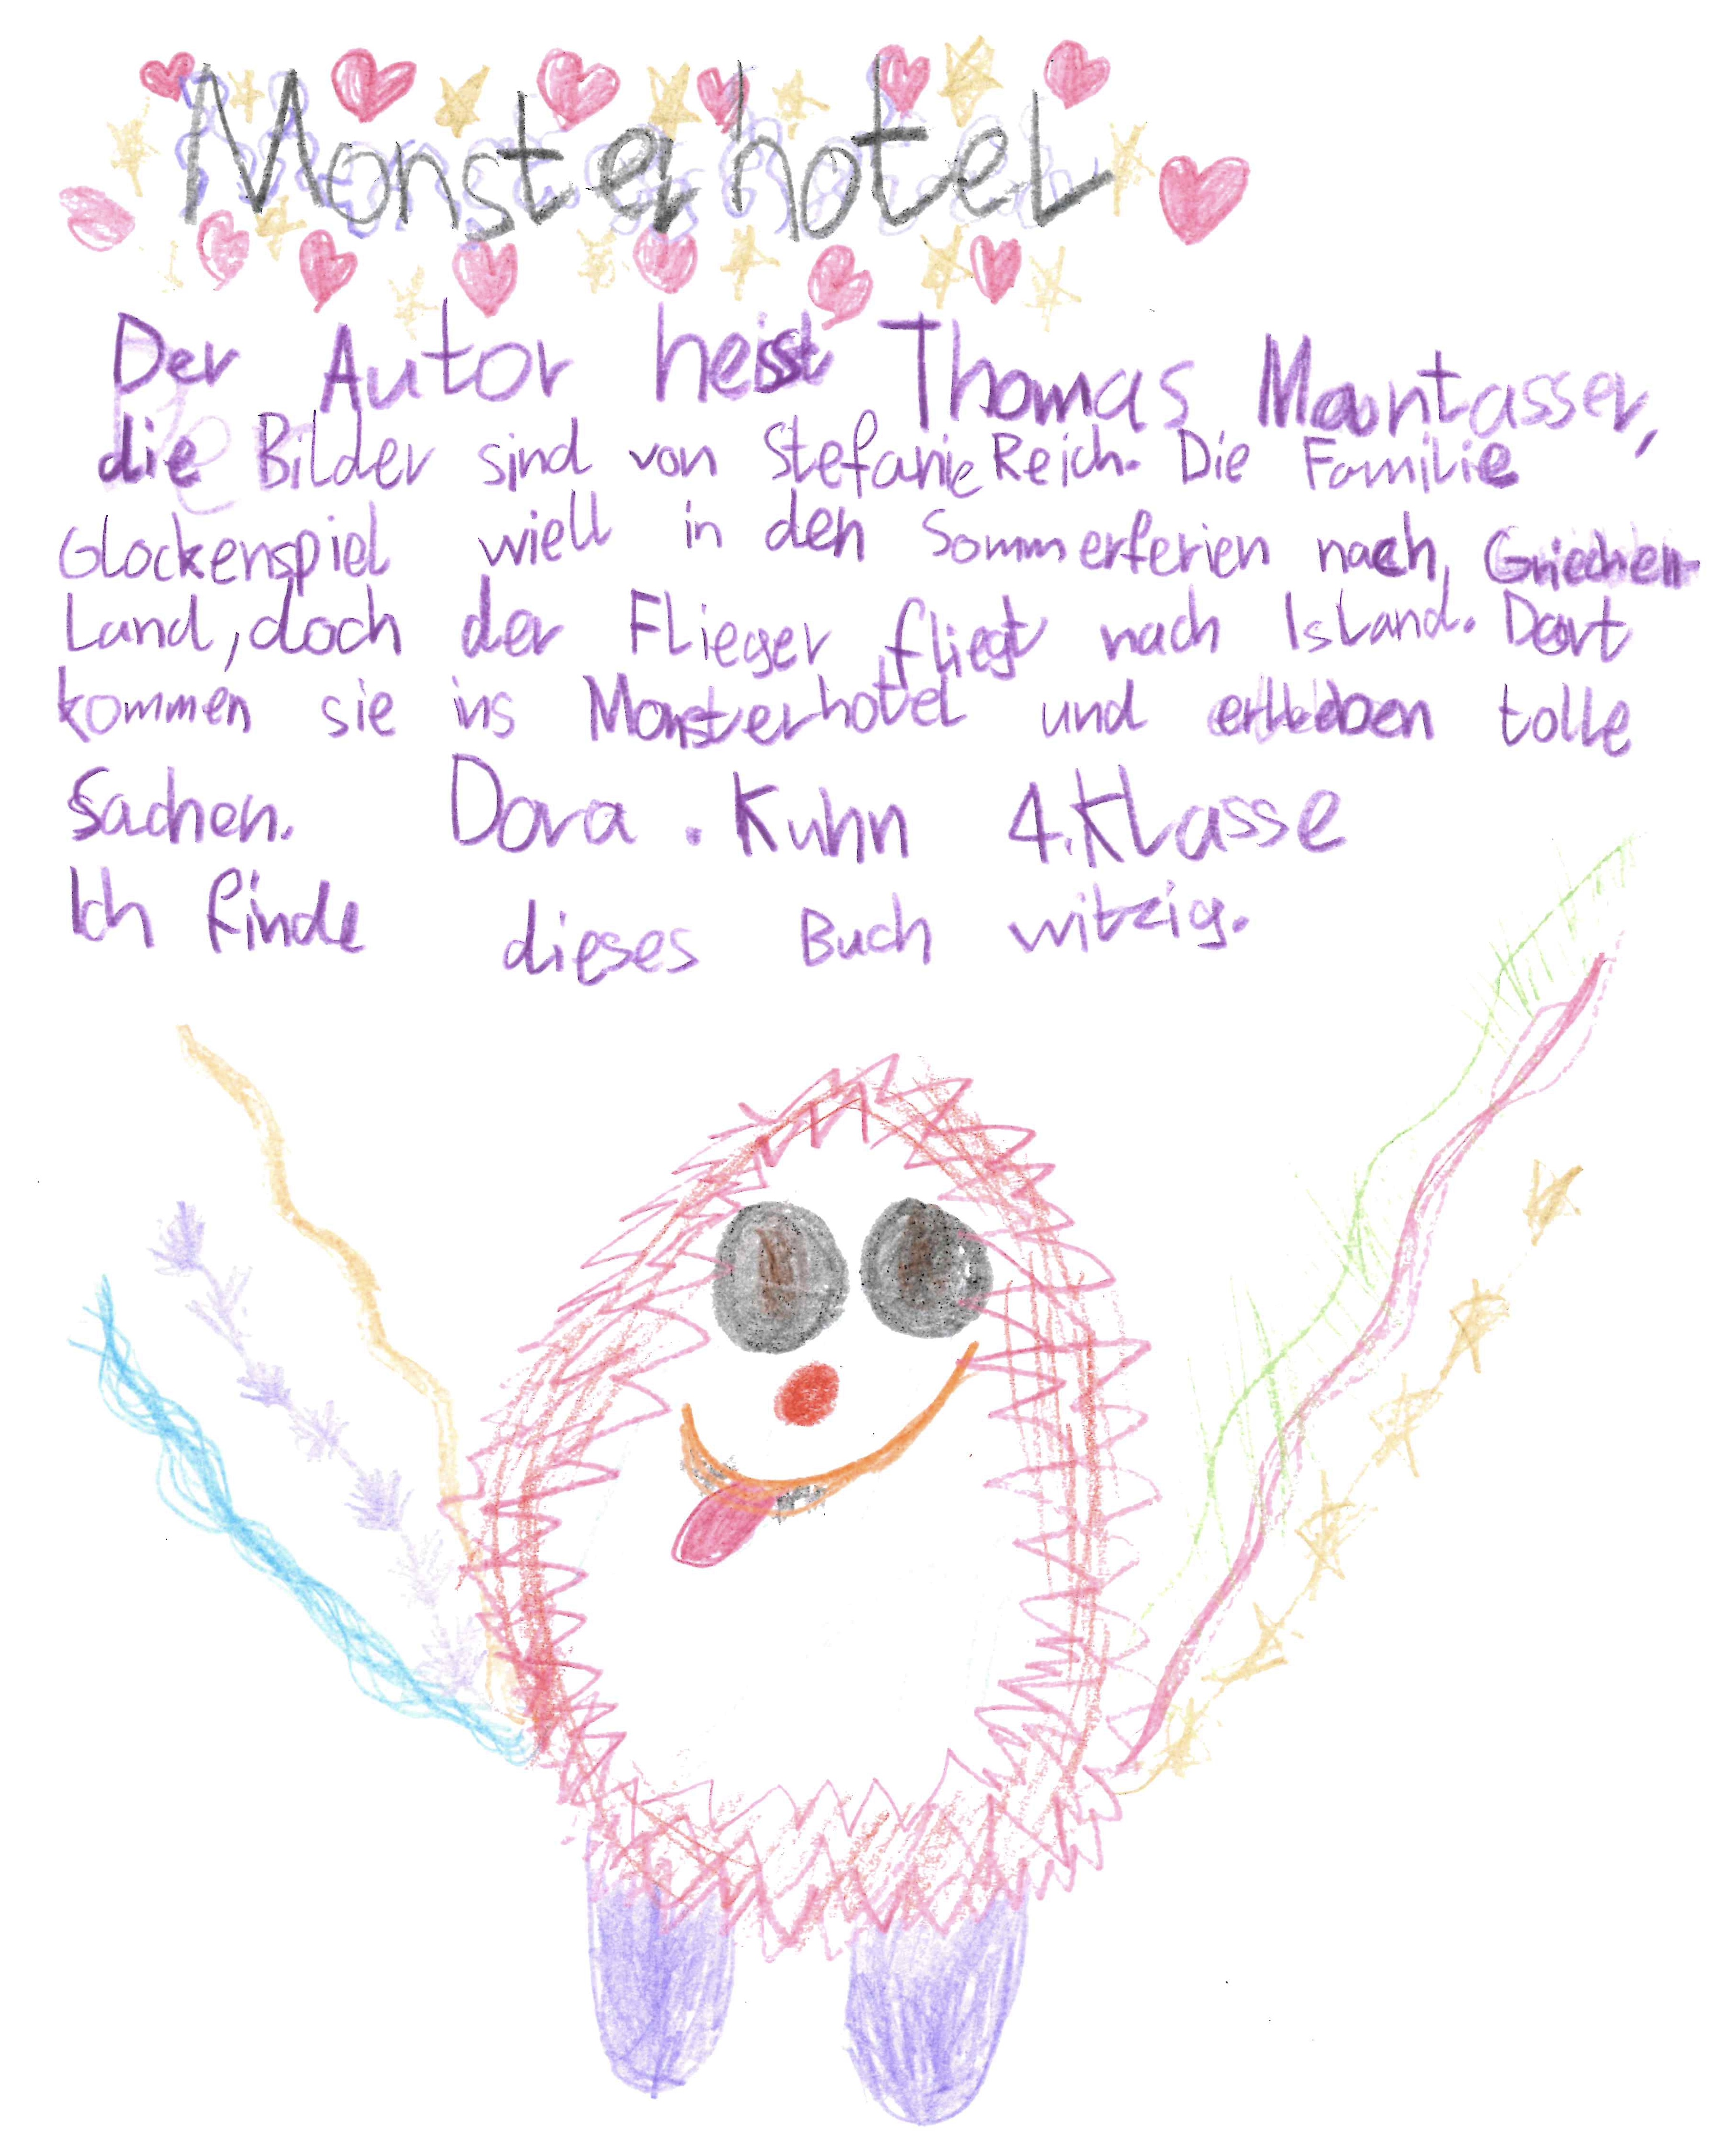 Monsterhotel
Der Autor heisst Thomas Montasser,
die Bilder sind von Stefanie Reich. Die Familie
Glockenspiel wiell in den Sommerferien nach Griechen-
Land, doch der Flieger fliegt nach Island. Dort
kommen sie ins Monsterhotel und erleben tolle
Sachen. Dora . Kuhn 4. Klasse
Ich finde dieses Buch witzig.